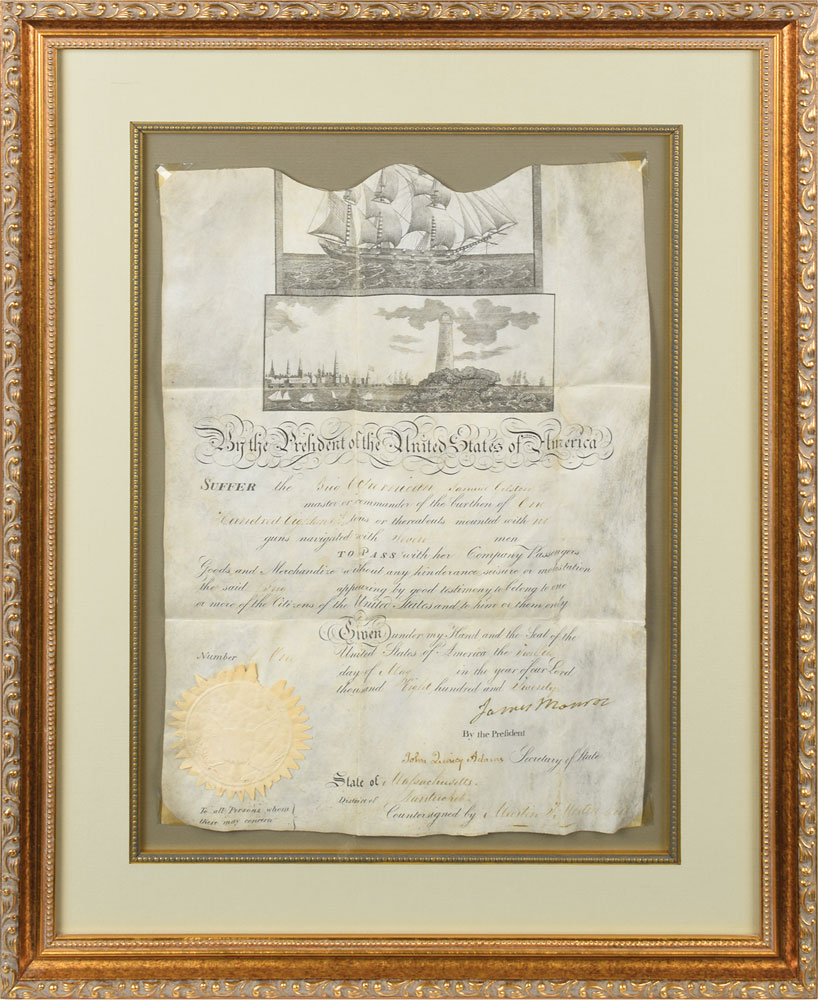 By the President of the United States of America
SUFFER the Brig
master or commander of the burthen of One
Hundred tons or thereabouts mounted with no
guns navigated with men
TO PASS with her Company Passengers
Goods and Merchandize without any hinderance seisure or molestation
the said Brig appearing by good testimony to belong to one
or more of the Citizens of the United States and to him or them only
Given under my Hand and the Seal of the
United States of America the
Number
day of in the year of our Lord
thousand Eight hundred and Twenty
James Monroe
By the President
John Quincy Adams Secretary of State
State of Massachusetts
District of Nantucket
To all Persons whom
these may concern
Countersigned by Martin T. Morton